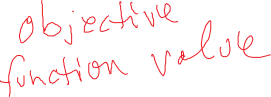 objective
function value